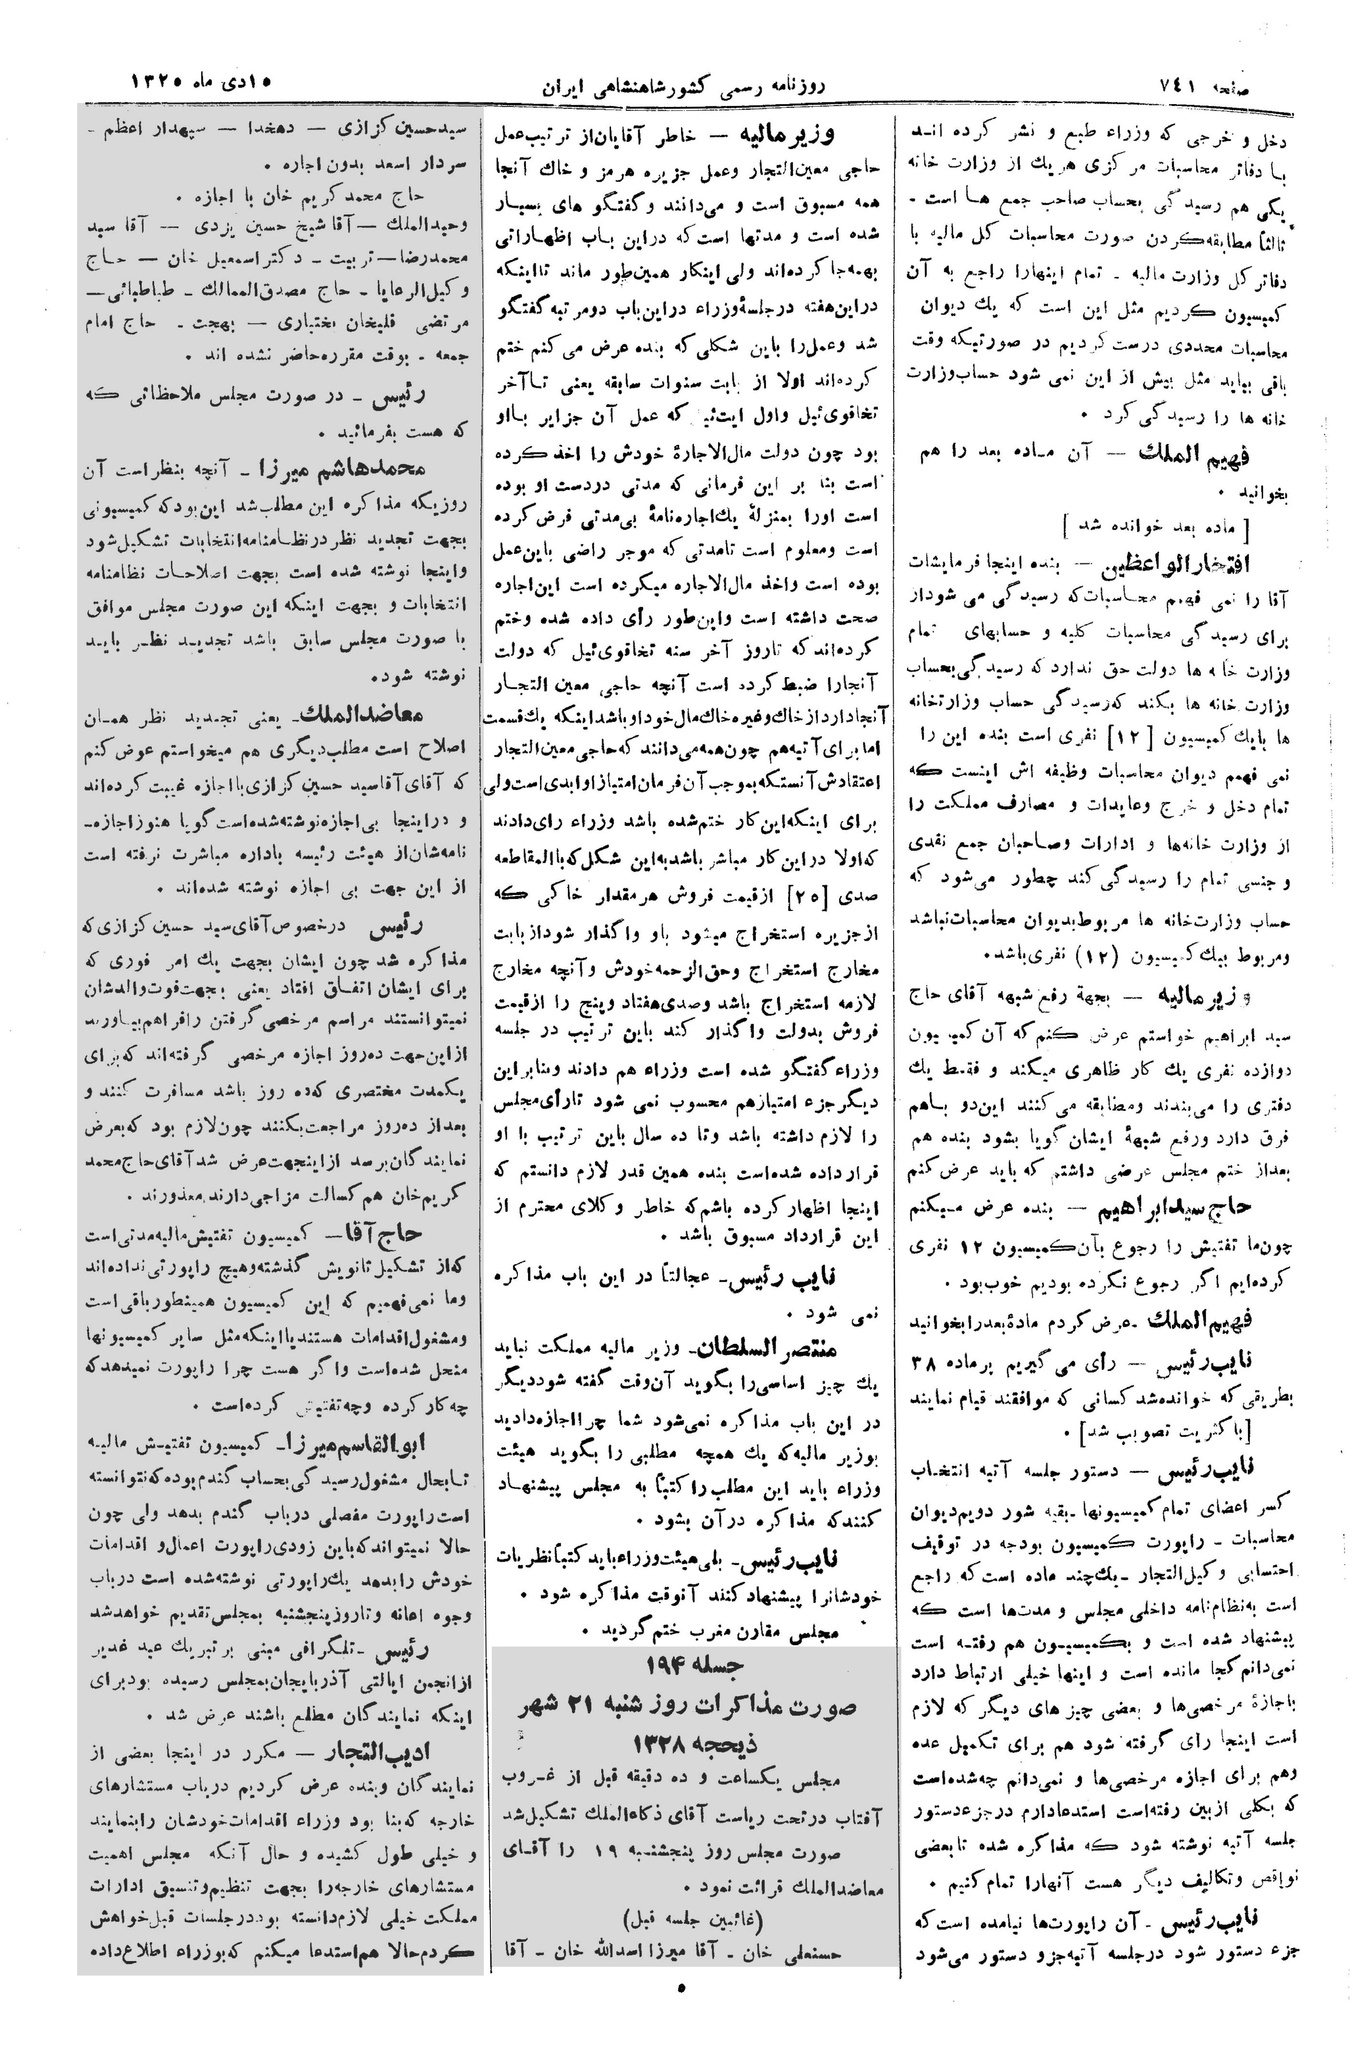 صفحه ۷۴۱
روزنامه رسمی کشور شاهنشاهی ایران
۱۵ دی ماه ۱۳۲۵
دخل و خرجی که وزراء طبع و نشر کرده اند
با دفاتر محاسبات مرکزی هریك از وزارت خانه
یکی هم رسیدگی بحساب صاحب جمع ها است ـ
ثالثاً مطابقه کردن صورت محاسبات کل مالیه با
دفاتر کل وزارت مالیه ـ تمام اینهارا راجع به آن
کمیسیون کردیم مثل این است که یك دیوان
محاسبات مجددی درست کردیم در صورتیکه وقت
باقی بیاید مثل بیش از این نمی شود حساب وزارت
خانه ها را رسیدگی کرد .
فهیم الملك — آن ماده بعد را هم
بخوانید .
[ ماده بعد خوانده شد ]
افتخار الواعظین — بنده اینجا فرمایشات
آقا را نمی فهیم محاسبات که رسیدگی می شود از
برای رسیدگی محاسبات کلیه و حسابهای تمام
وزارت خانه ها دولت حق ندارد که رسیدگی بحساب
وزارت خانه ها بکند که رسیدگی حساب وزارتخانه
ها با یك کمیسیون [۱۲] نفری است بنده این را
نمی فهمم دیوان محاسبات وظیفه اش اینست که
تمام دخل و خرج وعایدات و مصارف مملکت را
از وزارت خانه ها و ادارات وصاحبان جمع نقدی
و جنسی تمام را رسیدگی کند چطور می شود که
حساب وزارت خانه ها مربوط بدیوان محاسبات نباشد
ومربوط بیك کمیسیون (۱۲) نفری باشد.
وزیر مالیه — بجهة رفع شبهه آقای حاج
سید ابراهیم خواستم عرض کنم که آن کمیسیون
دوازده نفری یك کار ظاهری میکند و فقط یك
دفتری را می بندند ومطابقه می کنند این دو باهم
فرق دارد ورفع شبهۀ ایشان گویا بشود بنده هم
بعداز ختم مجلس عرضی داشتم که باید عرض کنم
حاج سید ابراهیم — بنده عرض میکنم
چون ما تفتیش را رجوع بآن کمیسیون ۱۲ نفری
کرده ایم اگر رجوع نکرده بودیم خوب بود .
فهیم الملك ـ عرض کردم مادۀ بعد را بخوانید
نایب رئیس — رأی می گیریم بر ماده ۳۸
بطریقی که خوانده شد کسانی که موافقند قیام نمایند
[با کثریت تصویب شد] .
نایب رئیس — دستور جلسه آتیه انتخاب
کسر اعضای تمام کمیسیونها ـ بقیه شور دویم دیوان
محاسبات ـ راپورت کمیسیون بودجه در توقیف
احتسابی وکیل التجار ـ یك چند ماده است که راجع
است به نظام نامه داخلی مجلس و مدت ها است که
پیشنهاد شده است و بکمیسیون هم رفته است
نمی دانم کجا مانده است و اینها خیلی ارتباط دارد
با اجازۀ مرخصی ها و بعضی چیز های دیگر که لازم
است اینجا رای گرفته شود هم برای تکمیل عده
وهم برای اجازه مرخصی ها و نمی دانم چه شده است
که بکلی از بین رفته است استدعا دارم در جزء دستور
جلسه آتیه نوشته شود که مذاکره شده تا بعضی
نواقص وتکالیف دیگر هست آنهارا تمام کنیم .
نایب رئیس ـ آن راپورت ها نیامده است که
جزء دستور شود در جلسه آتیه جزو دستور می شود
وزیر مالیه — خاطر آقایان از ترتیب عمل
حاجی معین التجار وعمل جزیره هرمز و خاك آنجا
همه مسبوق است و می دانند وگفتگو های بسیار
شده است و مدتها است که در این باب اظهاراتی
بهمه جا کرده اند ولی اینکار همین طور ماند تا اینکه
در این هفته در جلسۀ وزراء در این باب دو مرتبه گفتگو
شد وعمل را باین شکلی که بنده عرض می کنم ختم
کرده اند اولا از بابت سنوات سابقه یعنی تا آخر
تخاقوی ئیل واول ایت ئیل که عمل آن جزایر با او
بود چون دولت مال الاجارۀ خودش را اخذ کرده
است بنا بر این فرمانی که مدتی در دست او بوده
است اورا بمنزلۀ یك اجاره نامۀ بی مدتی فرض کرده
است ومعلوم است تا مدتی که موجر راضی باین عمل
بوده است واخذ مال الاجاره میکرده است این اجاره
صحت داشته است و این طور رأی داده شده وختم
کرده اند که تا روز آخر سنه تخاقوی ئیل که دولت
آنجارا ضبط کرده است آنچه حاجی معین التجار
آنجا دارد از خاك و غیره خاك مال خود او باشد اینکه یك قسمت
اما برای آتیه هم چون همه می دانند که حاجی معین التجار
اعتقادش آنستکه بموجب آن فرمان امتیاز او ابدی است ولی
برای اینکه این کار ختم شده باشد وزراء رای دادند
که اولا در این کار مباشر باشد به این شکل که با المقاطعه
صدی [۲۵] از قیمت فروش هر مقدار خاکی که
از جزیره استخراج میشود باو واگذار شود از بابت
مخارج استخراج وحق الزحمه خودش و آنچه مخارج
لازمه استخراج باشد و صدی هفتاد و پنج را از قیمت
فروش بدولت واگذار کند باین ترتیب در جلسه
وزراء گفتگو شده است وزراء هم دادند و بنابراین
دیگر جزء امتیاز هم محسوب نمی شود تا رأی مجلس
را لازم داشته باشد وتا ده سال باین ترتیب با او
قرار داده شده است بنده همین قدر لازم دانستم که
اینجا اظهار کرده باشم که خاطر وکلای محترم از
این قرارداد مسبوق باشد .
نایب رئیس ـ عجالتاً در این باب مذاکره
نمی شود .
منتصر السلطان ـ وزیر مالیه مملکت نباید
یك چیز اساسی را بگوید آن وقت گفته شود دیگر
در این باب مذاکره نمی شود شما چرا اجازه دادید
بوزیر مالیه که یك همچه مطلبی را بگوید هیئت
وزراء باید این مطلب را کتباً به مجلس پیشنهاد
کنند که مذاکره در آن بشود .
نایب رئیس ـ بلی هیئت وزراء باید کتباً نظریات
خودشانرا پیشنهاد کنند آنوقت مذاکره شود .
مجلس مقارن مغرب ختم گردید .
جسله ۱۹۴
صورت مذاکرات روز شنبه ۲۱ شهر
ذیحجه ۱۳۲۸
مجلس یکساعت و ده دقیقه قبل از غروب
آفتاب در تحت ریاست آقای ذکاء الملك تشکیل شد
صورت مجلس روز پنجشنبه ۱۹ را آقای
معاضد الملك قرائت نمود .
(غائبین جلسه قبل)
حسنعلی خان ـ آقا میرزا اسدالله خان ـ آقا
سید حسین کزازی — دهخدا — سپهدار اعظم ـ
سردار اسعد بدون اجازه .
حاج محمد کریم خان با اجازه .
وحید الملك — آقا شیخ حسین یزدی — آقا سید
محمدرضا — تربیت ـ دکتر اسمعیل خان — حاج
وکیل الرعایا ـ حاج مصدق الممالك ـ طباطبائی —
مرتضی قلیخان بختیاری — بهجت ـ حاج امام
جمعه ـ بوقت مقرره حاضر نشده اند .
رئیس ـ در صورت مجلس ملاحظاتی که
که هست بفرمائید .
محمد هاشم میرزا ـ آنچه بنظر است آن
روزیکه مذاکره این مطلب شد این بود که کمیسیونی
بجهت تجدید نظر در نظامنامه انتخابات تشکیل شود
و اینجا نوشته شده است بجهت اصلاحات نظامنامه
انتخابات و بجهت اینکه این صورت مجلس موافق
با صورت مجلس سابق باشد تجدید نظر باید
نوشته شود.
معاضد الملك ـ یعنی تجدید نظر همان
اصلاح است مطلب دیگری هم میخواستم عوض کنم
که آقای آقاسید حسین کزازی با اجازه غیبت کرده اند
و در اینجا بی اجازه نوشته شده است گویا هنوز اجازه ـ
نامه شان از هیئت رئیسه باداره مباشرت نرفته است
از این جهت بی اجازه نوشته شده اند .
رئیس درخصوص آقای سید حسین کزازی که
مذاکره شد چون ایشان بجهت یك امر فوری که
برای ایشان اتفاق افتاد یعنی بجهت فوت والدشان
نمیتوانستند مراسم مرخصی گرفتن را فراهم بیاورند
از این جهت ده روز اجازه مرخصی گرفته اند که برای
یکمدت مختصری که ده روز باشد مسافرت کنند و
بعد از ده روز مراجعت بکنند چون لازم بود که بعرض
نمایندگان برسد از اینجهت عرض شد آقای حاج محمد
کریم خان هم کسالت مزاجی دارند معذورند .
حاج آقا — کمیسیون تفتیش مالیه مدتی است
که از تشکیل ثانویش گذشته و هیچ راپورتی نداده اند
وما نمی فهمیم که این کمیسیون همینطور باقی است
ومشغول اقدامات هستند یا اینکه مثل سایر کمیسیونها
منحل شده است و اگر هست چرا راپورت نمیدهد که
چه کار کرده وچه تفتیش کرده است .
ابوالقاسم میرزا ـ کمیسیون تفتیش مالیه
تا بحال مشغول رسیدگی بحساب گندم بوده که نتوانسته
است راپورت مفصلی در باب گندم بدهد ولی چون
حالا نمیتواند که باین زودی راپورت اعمال و اقدامات
خودش را بدهد یك راپورتی نوشته شده است در باب
وجوه اعانه و تا روز پنجشنبه بمجلس تقدیم خواهد شد
رئیس ـ تلگرافی مبنی بر تبریك عید غدیر
از انجمن ایالتی آذربایجان بمجلس رسیده بود برای
اینکه نمایندگان مطلع باشند عرض شد .
ادیب التجار — مکرر در اینجا بعضی از
نمایندگان وبنده عرض کردیم در باب مستشارهای
خارجه که بنا بود وزراء اقدامات خودشان را بنمایند
و خیلی طول کشیده و حال آنکه مجلس اهمیت
مستشارهای خارجه را بجهت تنظیم و تنسیق ادارات
مملکت خیلی لازم دانسته بود در جلسات قبل خواهش
کردم حالا هم استدعا میکنم که بوزراء اطلاع داده
۵